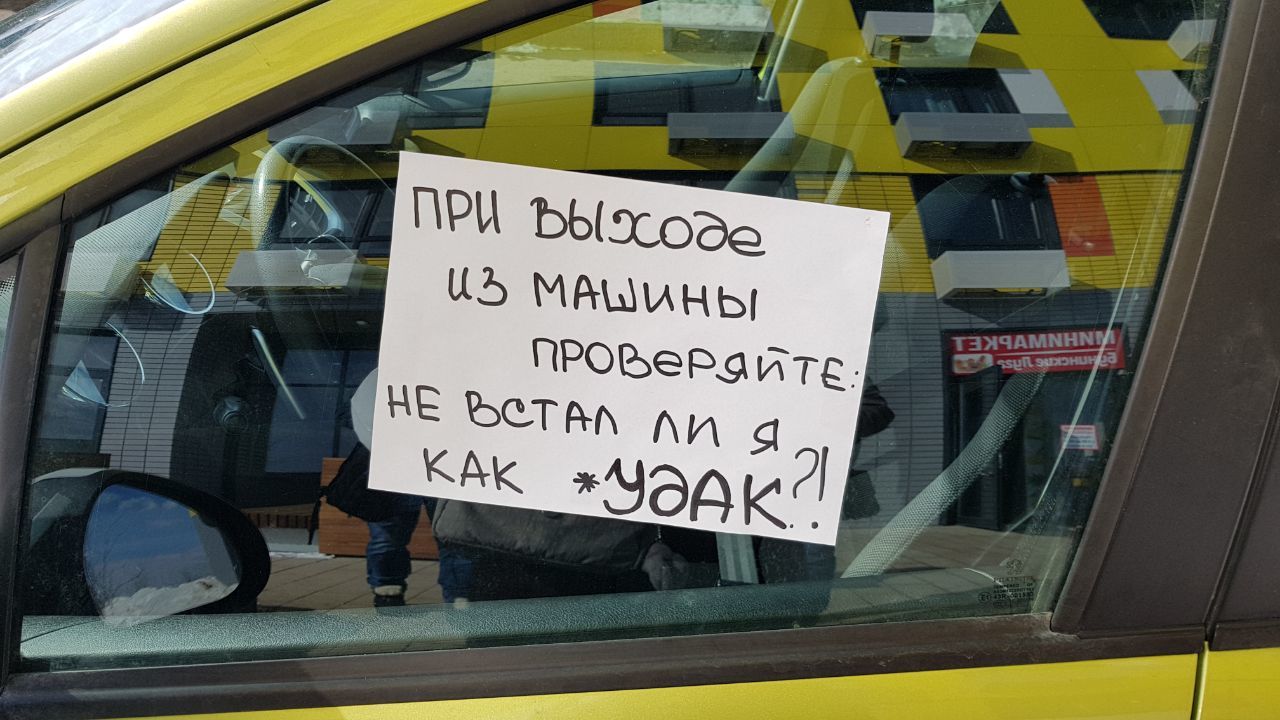 ПРИ ВЫХОДЕ
ИЗ МАШИНЫ
ПРОВЕРЯЙТЕ:
НЕ ВСТАЛ ЛИ Я
КАК *УДАК?!
МИНИМАРКЕТ
Бунинские Луга